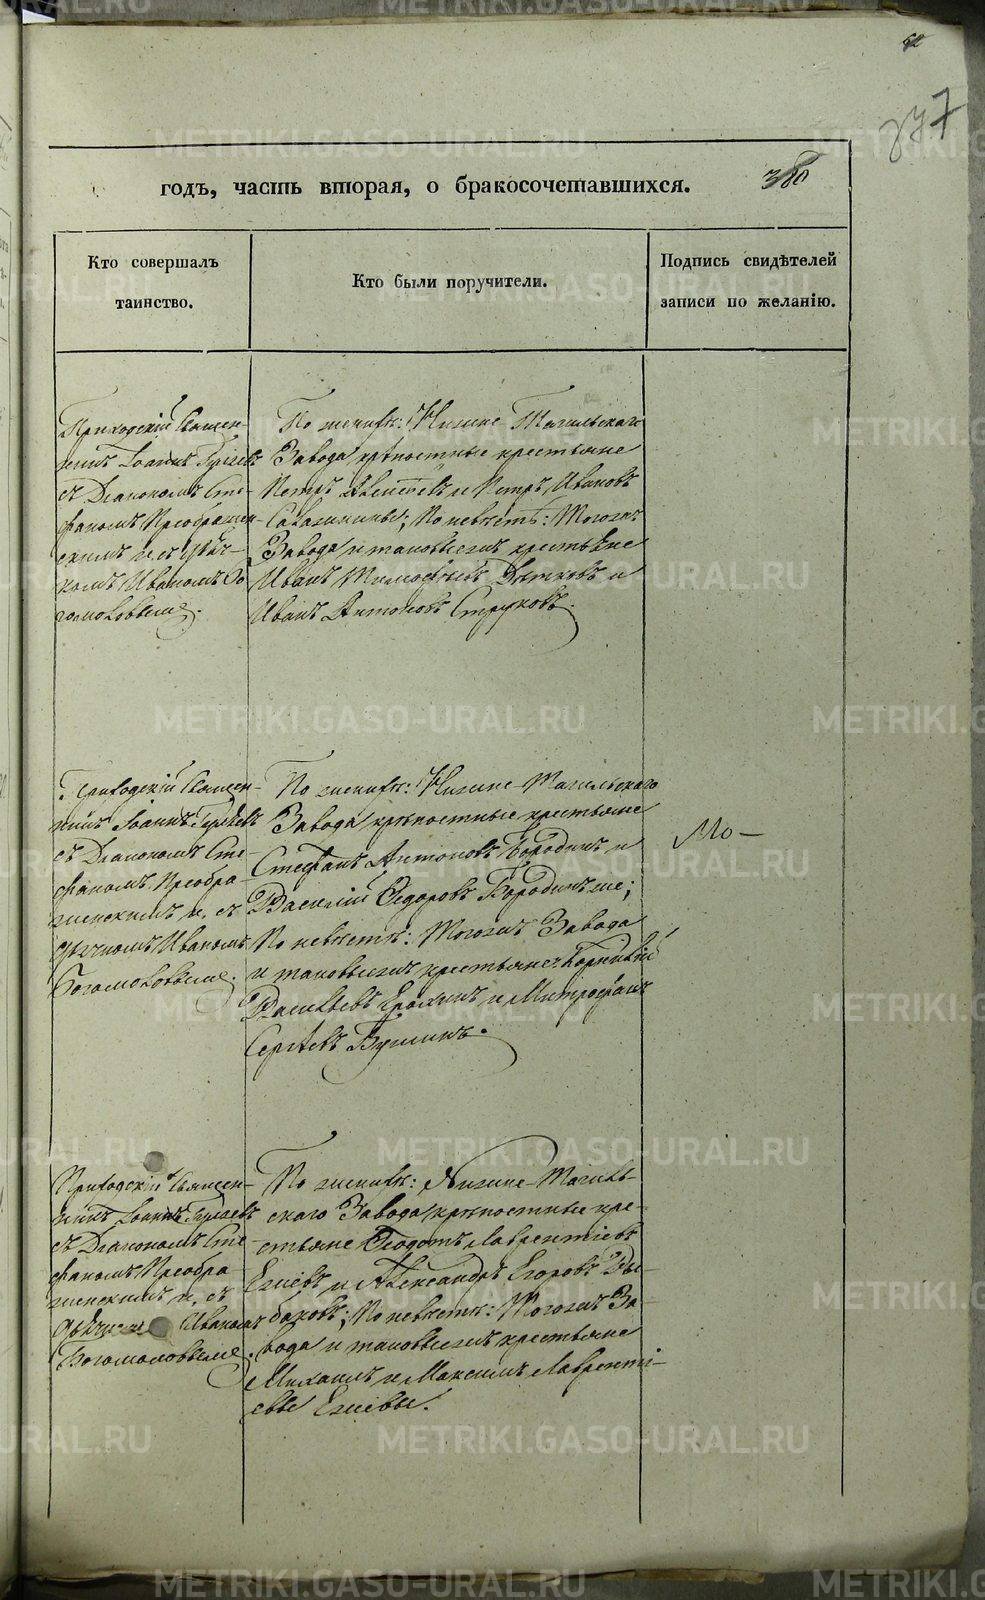 377
годъ, часть вторая, о бракосочетавшихся.
380
Кто совершалъ
таинство.
Кто были поручители.
Подпись свидѣтелей
записи по желанію.
Приходскій Священ-
никъ Іоаннъ
съ Діакономъ Сте-
фаномъ Преображен-
скимъ и съ Дьяч-
комъ Иваномъ Бо-
гомоловымъ.
По женихѣ: Нижне Тагильскаго
Завода крѣпостные крестьяне
Петръ Алексѣевъ и Петръ Ивановъ
По невѣстѣ: Тогожъ
Завода и таковыежъ крестьяне
Иванъ Тимофѣевъ и
Иванъ Антоновъ Струковъ.
Приходскій Священ-
никъ Іоаннъ
съ Діакономъ Сте-
фаномъ Преобра-
женскимъ и съ
дьячкомъ Иваномъ
Богомоловымъ.
По женихѣ: Нижне-Тагильскаго
Завода крѣпостные крестьяне
Стефанъ Антоновъ Бородинъ и
Василій Ѳедоровъ Бородинъ же;
По невѣстѣ: Тогожъ Завода
и таковыежъ крестьяне
Васильевъ Ерохинъ и Митрофанъ
Сергѣевъ
Приходскій Священ-
никъ Іоаннъ
съ Діакономъ Сте-
фаномъ Преобра-
женскимъ и съ
Иваномъ
Богомоловымъ.
По женихѣ: Нижне-Тагиль-
скаго Завода крѣпостные кре-
стьяне Ѳедотъ Лаврентіевъ
и Александръ Егоровъ Ры-
баковъ; По невѣстѣ: Тогожъ За-
вода и таковыежъ крестьяне
Михаилъ и Максимъ Лаврентi-
евы
METRIKI.GASO-URAL.RU